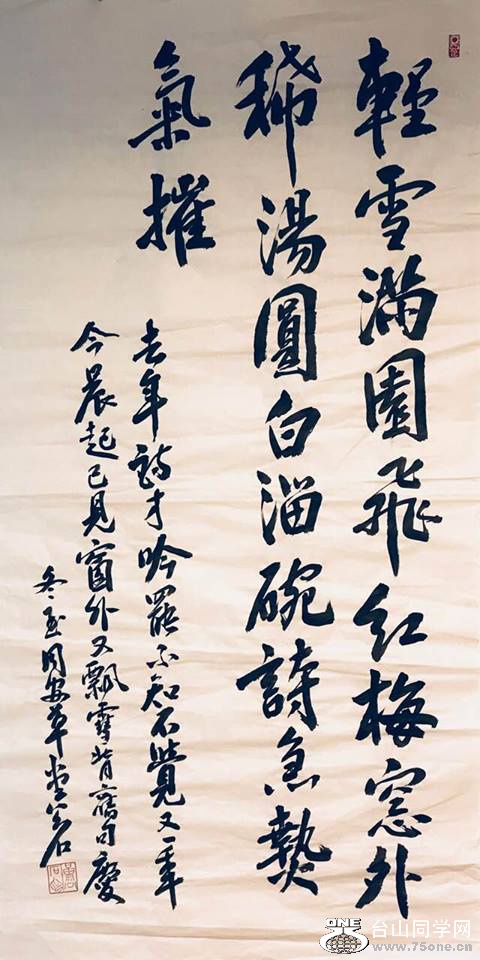 輕雪滿園飛紅梅窓外
稀湯圓白溜碗詩急熱
氣摧
去年詩才吟罷不知不覺又一年
今晨起已見窗外又飄雪背舊句慶
冬至草堂石
ONE
台山同学网
www.75one.cn